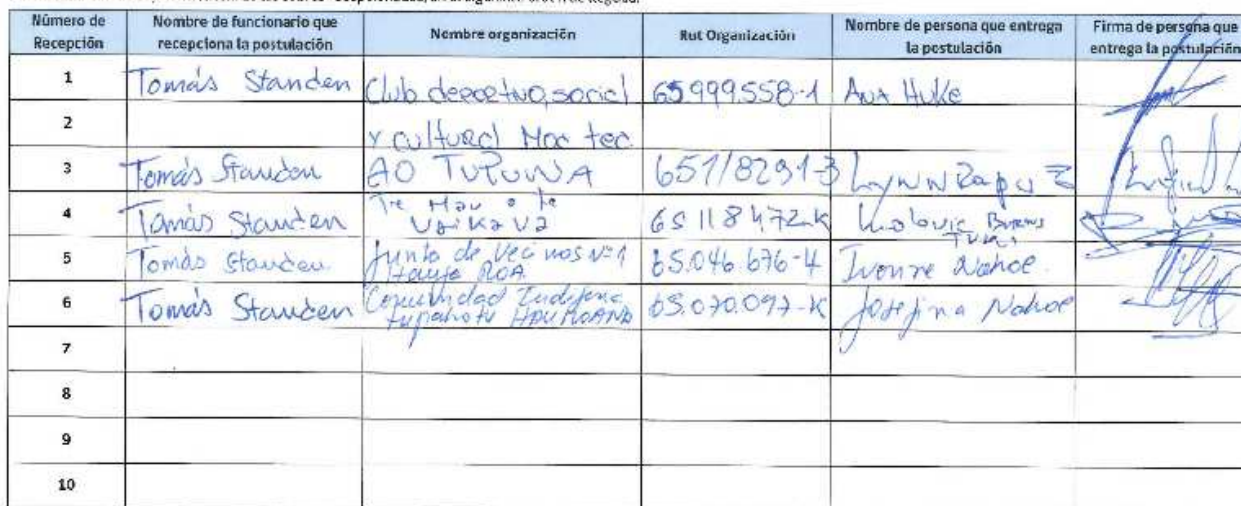 Número de Recepción Nombre de funcionario que recepciona la postulación Nombre organización Rut Organización Nombre de persona que entrega la postulación Firma de persona que entrega la postulación
1 Tomás Standen Club deportivo, social 65.999.558-1 Ana Huke
2 y cultural
3 Tomás Standen AO TUPUNA 65118291-3 Lynn Rapu
4 Tomás Standen Te Mau o te Vaikava 65118472-K
5 Tomás Standen Junta de Vecinos Nº1 Hanga ROA 65.046.676-4 Ivonne Nahoe
6 Tomás Standen Comunidad Indígena 65.070.097-K Josefina Nahoe
7
8
9
10